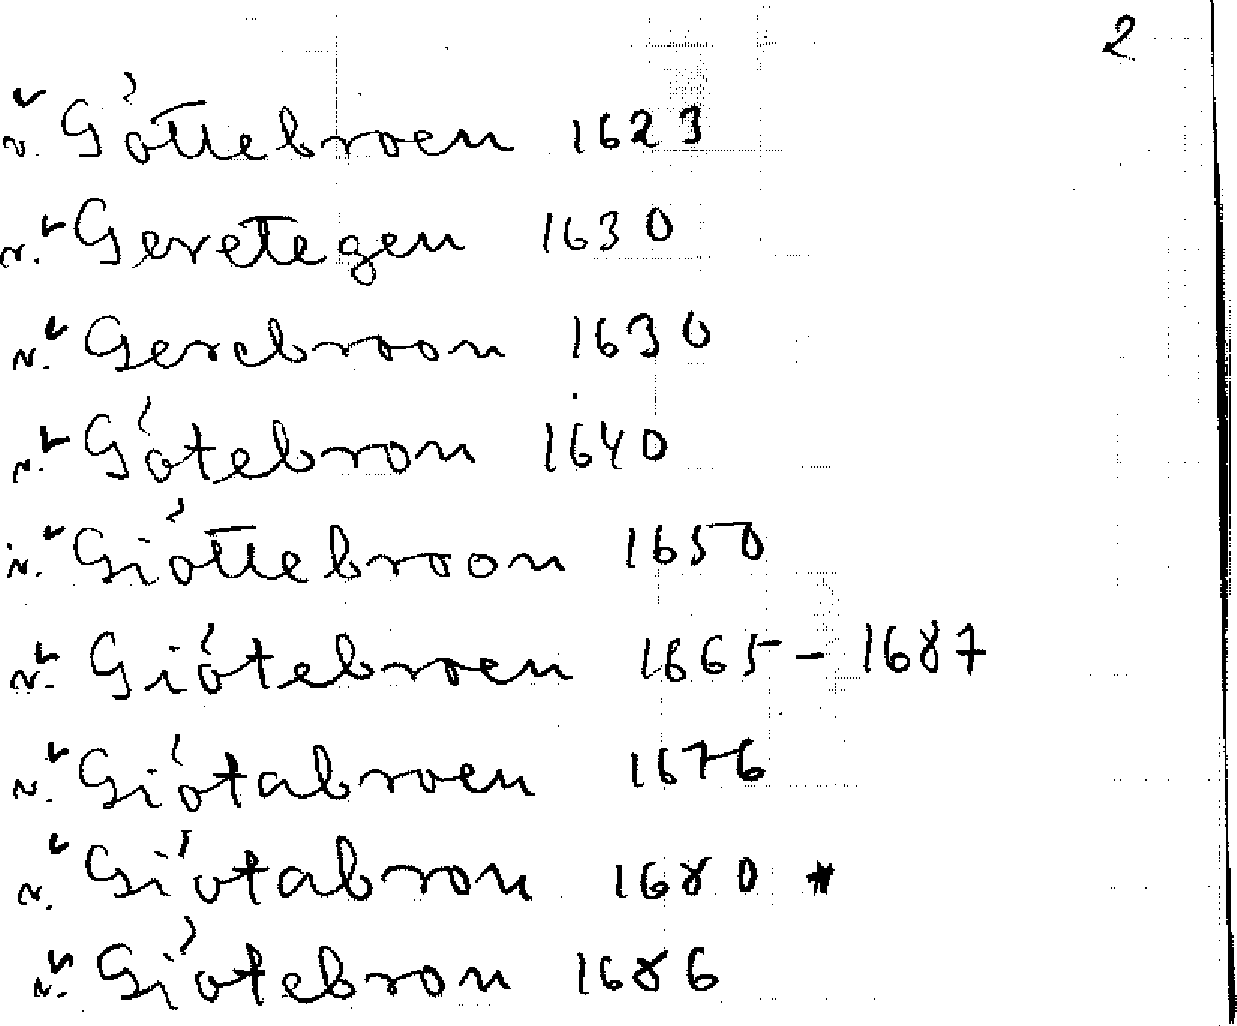 2
v. Göttebroen 1623
n. Geretegen 1630
n. Gerebroon 1630
n. Götebron 1640
n. Giöttebroon 1650
n. Giötebroen 1665 - 1687
n. Giötabroen 1676
n. Giötabron 1680 *
n. Giötebron 1686